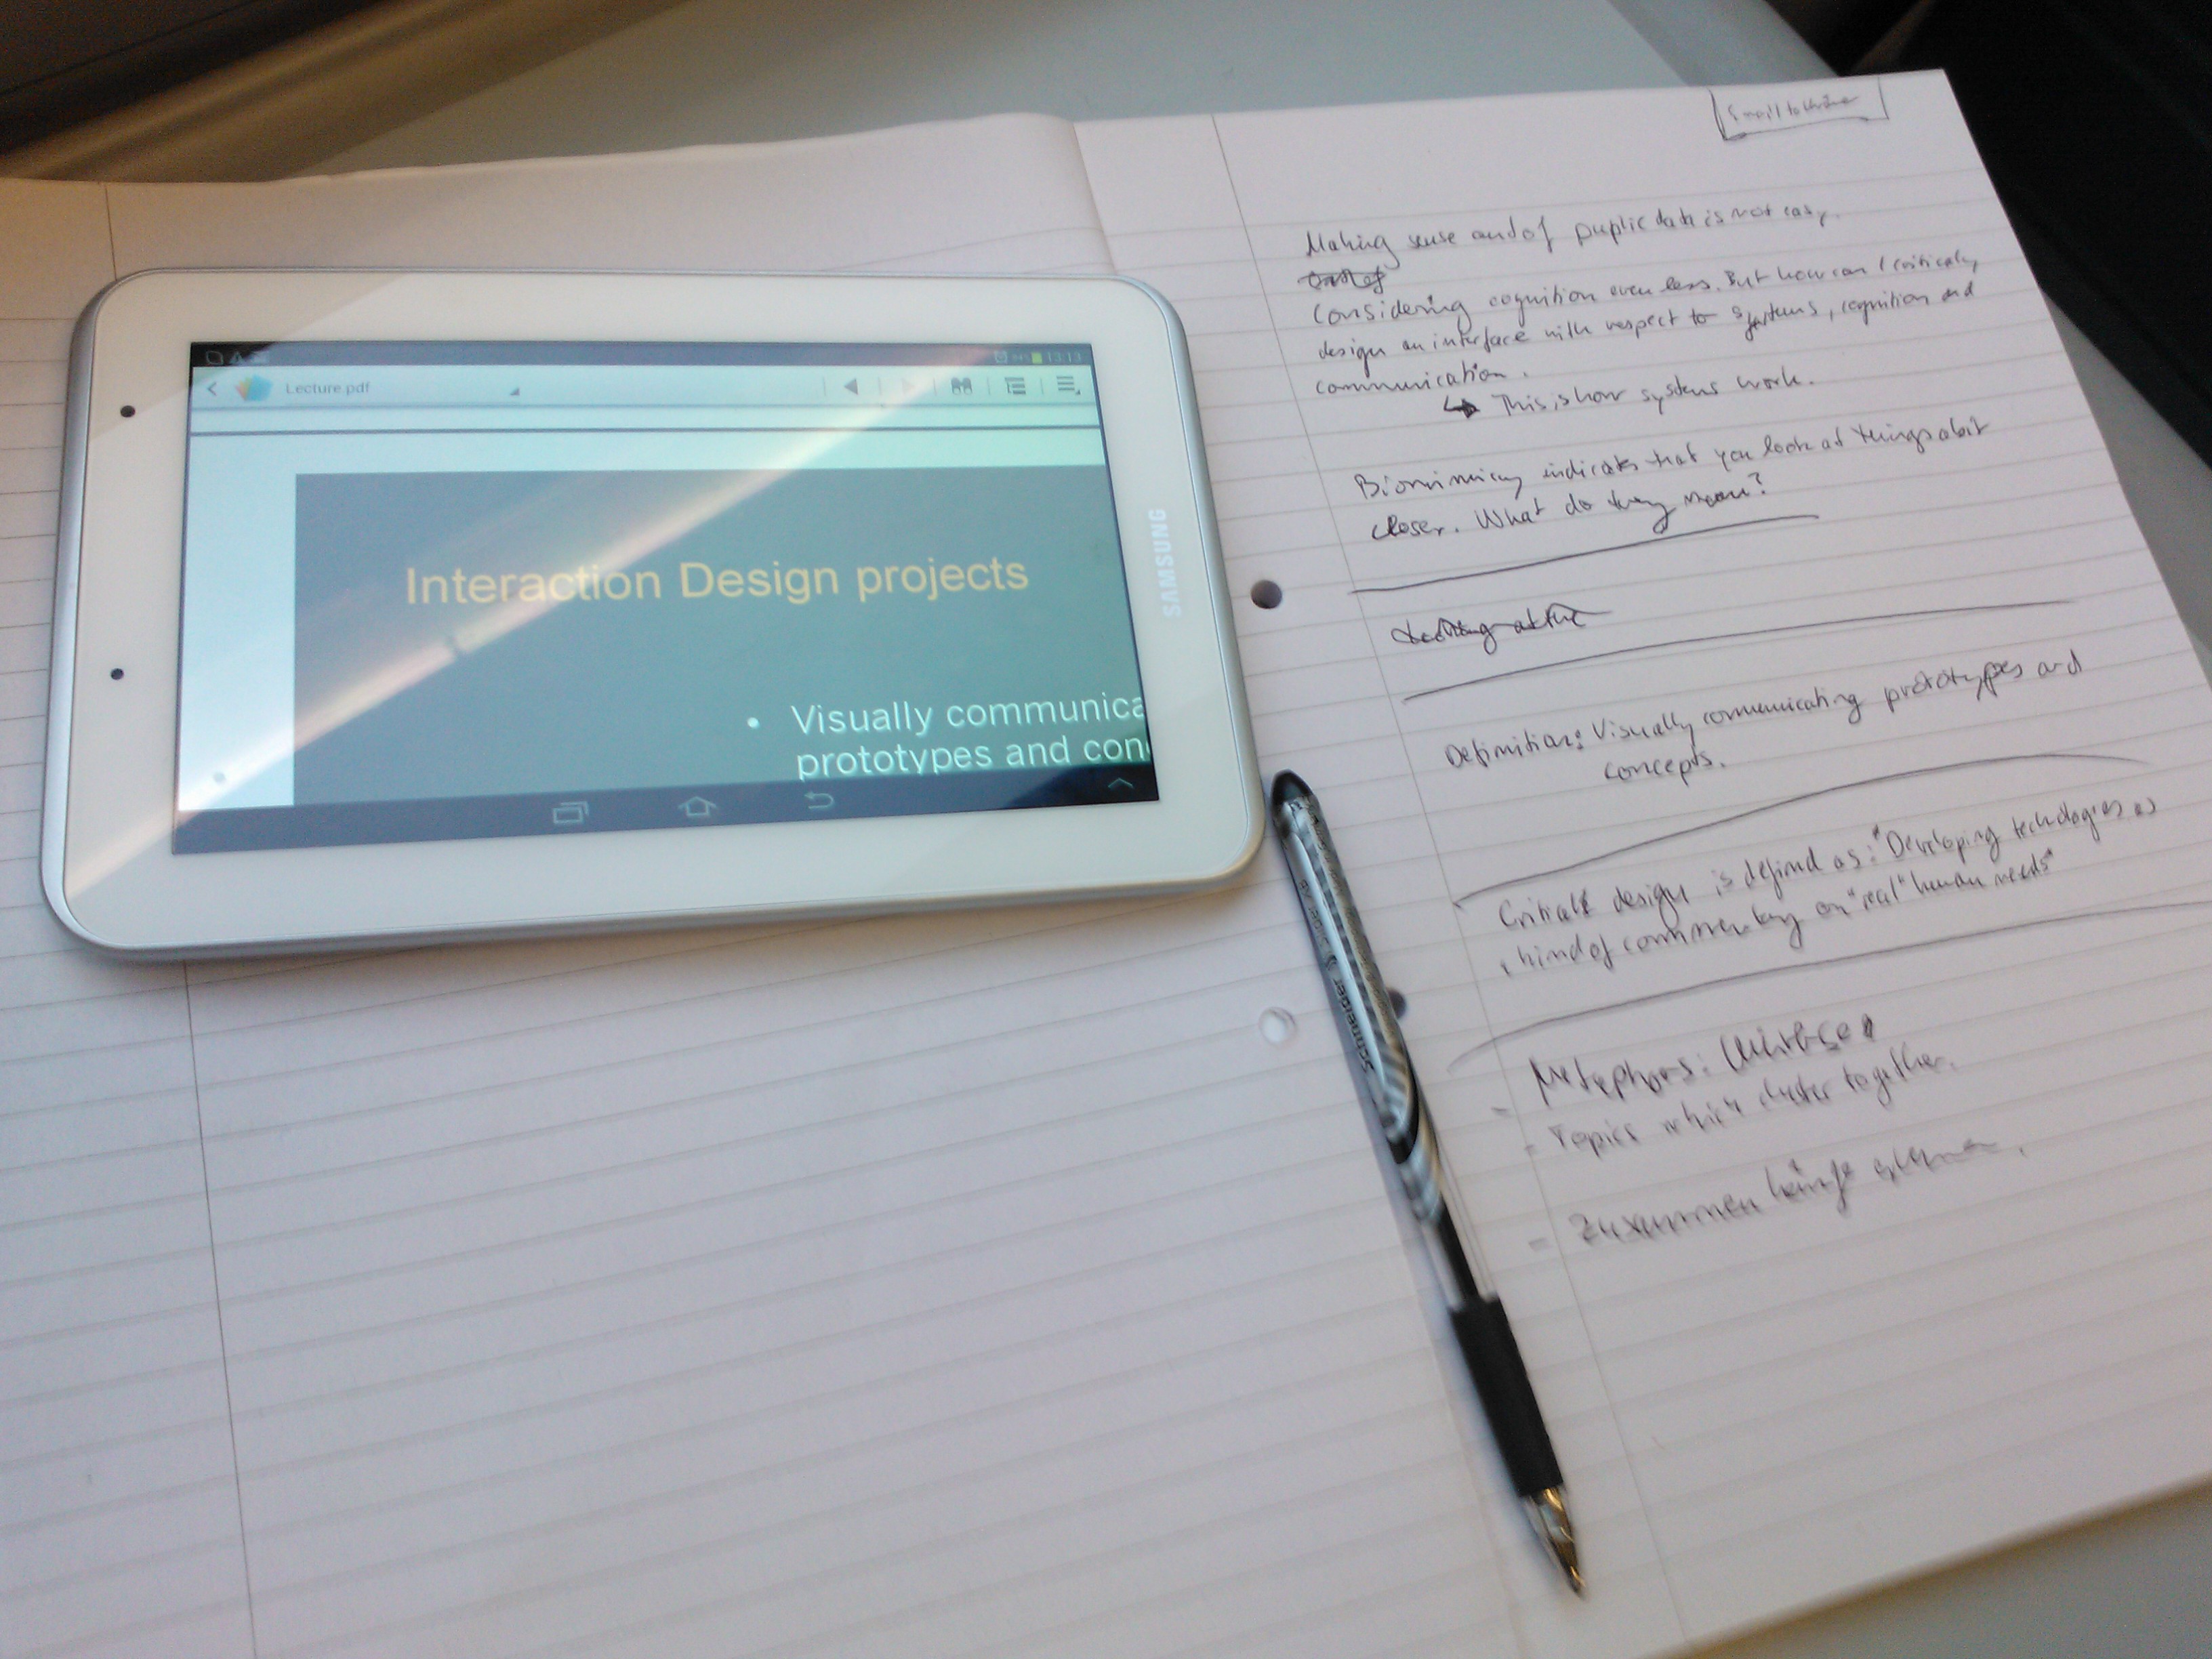 13:13
Lecture.pdf
Interaction Design projects
• Visually communica
prototypes and con
SAMSUNG
Schneider
Making sense and of puplic data is not easy.
Considering cognition even less. But how can I criticaly
design an interface with respect to systems, cognition and
communication.
↳ This is how systems work.
Biomimicry indicates that you look at things a bit
closer. What do they mean?
Definition: Visually communicating prototypes and
concepts.
Critical design is defined as: "Developing technologies as
a kind of commentary on "real" human needs"
- Metaphors:
- Topics which cluster together.
- Zusammenhänge